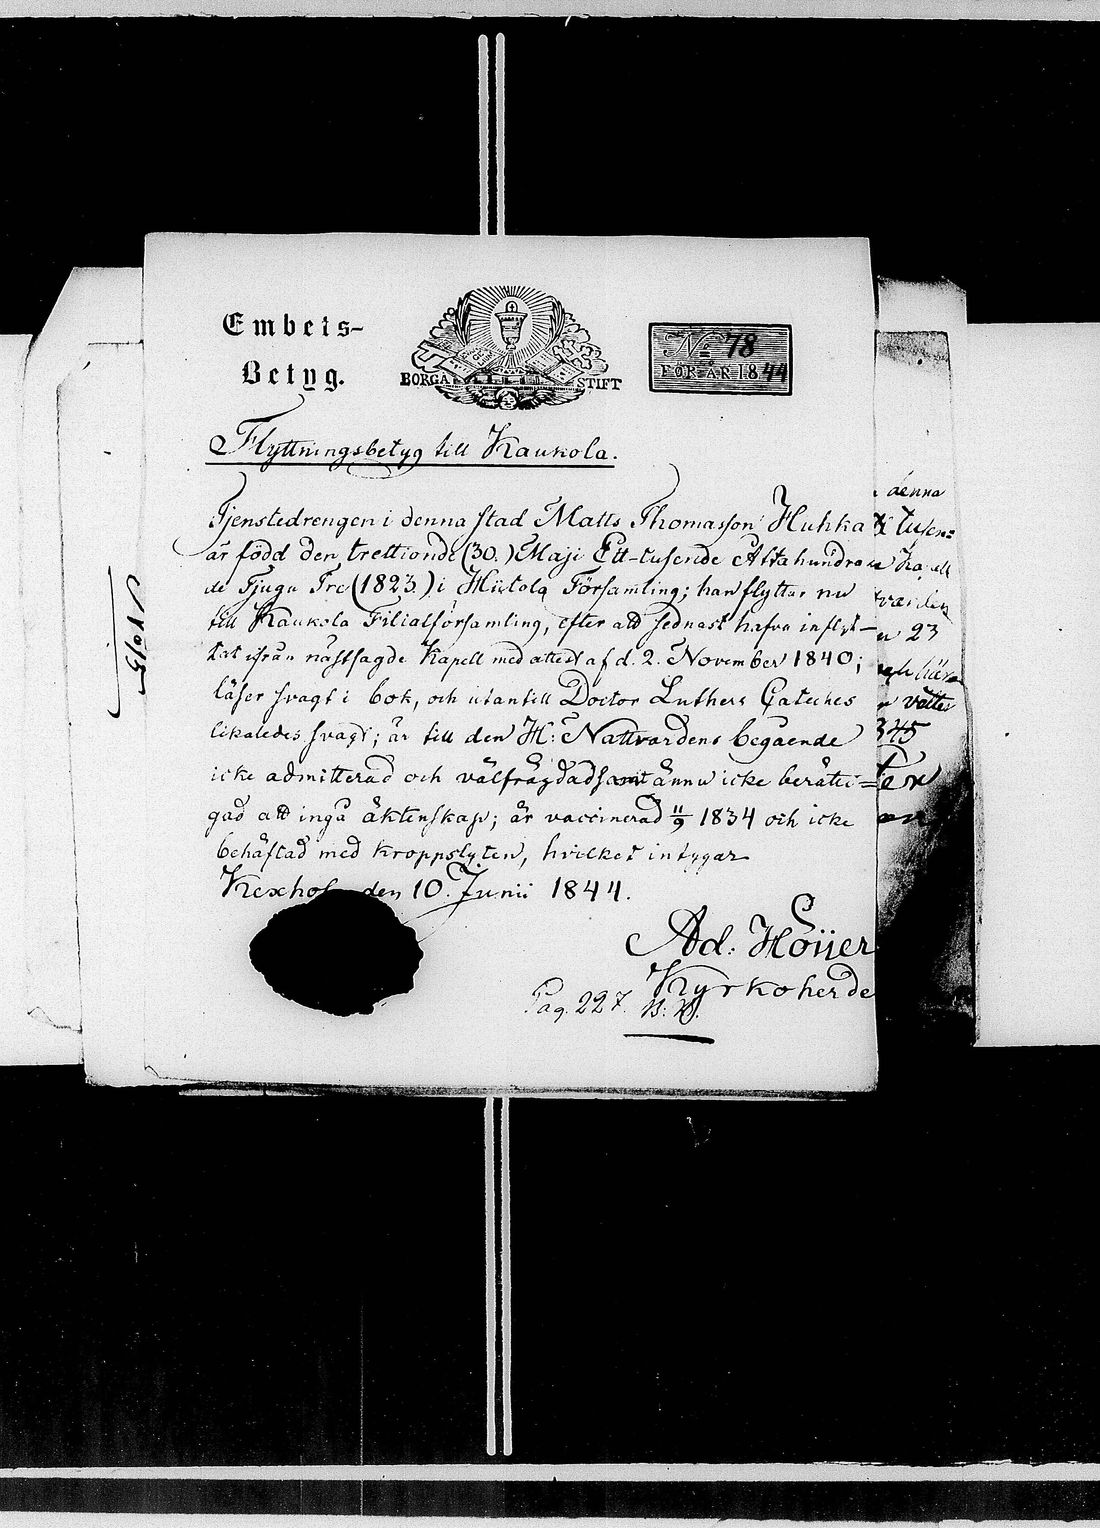 Embets-
Betyg.
BORGÅ STIFT
No 78
FÖR ÅR 1844
Flyttningsbetyg till Kaukola.
Tjenstedrengen i denna stad Matts Thomasson Huhka
är född den trettionde (30.) Maji Ett-tusende Åttahundra
de Tjugu Tre (1823.) i Hiitola Församling; han flyttar nu
till Kaukola Filialförsamling, efter att sednast hafva inflyt-
tat ifrån nästsagde Kapell med attest af d. 2. November 1840;
läser svagt i bok, och utantill Doctor Luthers Cateches
likaledes svagt; är till den H: Nattvardens begående
icke admitterad och välfrägdad samt ännu icke berätti=
gad att ingå äktenskap; är vaccinerad 11/9 1834 och icke
behäftad med kroppslyten, hvilket intygar
Kexholm den 10. Junii 1844.
Ad: Höijer
Kyrkoherde
Pag. 227.
denna
tusen=
Kapell
n 23
345